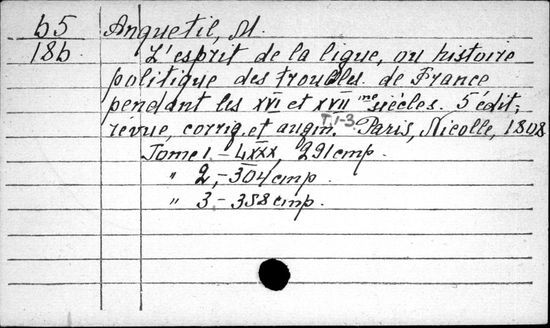 b5 Anquetil, M.
18b L'esprit de la ligue, ou histoire
politique des troubles de France
pendant les XVI et XVII me siècles. 5 édit.,
révue, corrig. et augm. T.1-3 Paris, Nicolle, 1808
Tome 1. - LXXX, 291 стр.
" 2, - 304 стр.
" 3 - 358 стр.